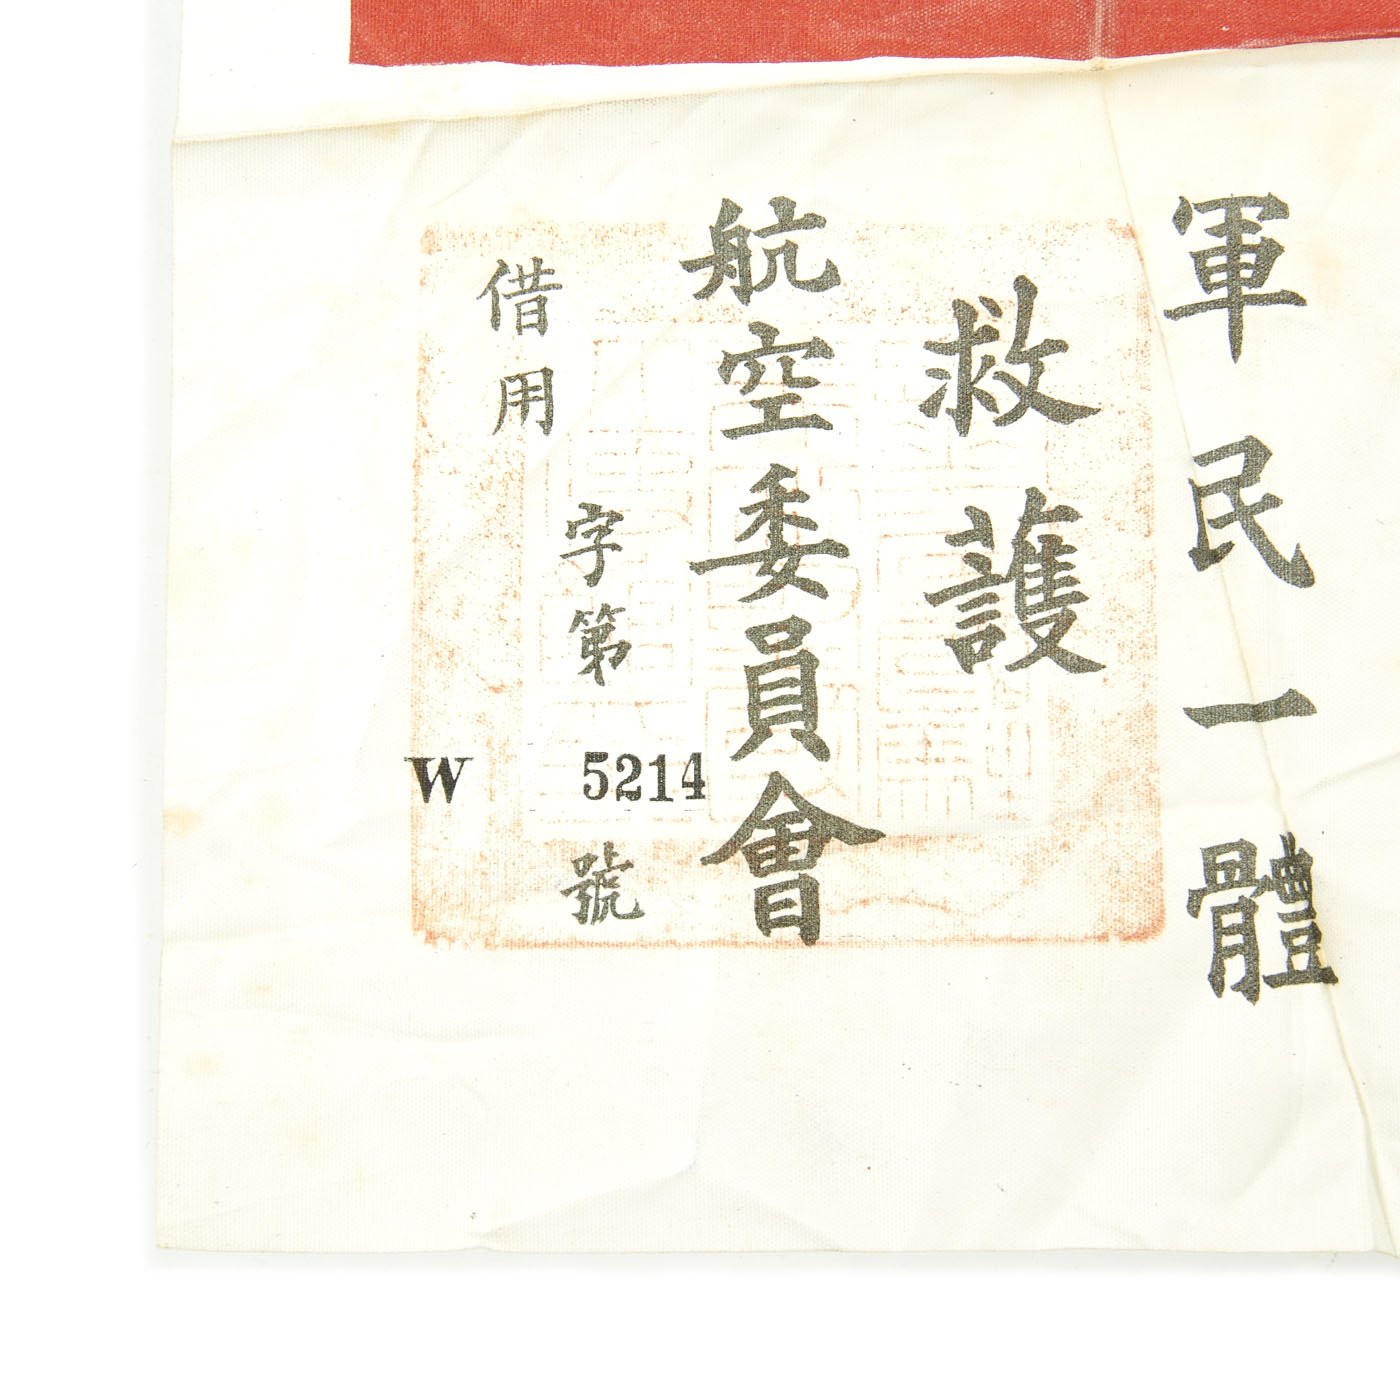 軍民一體
救護
航空委員會
字第5214號
借用
W